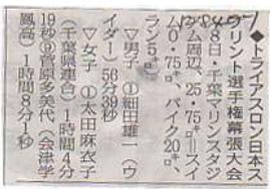 ◆トライアスロン日本ス
プリント選手権幕張大会
8日・千葉マリンスタジ
アム周辺、25・75㌔＝スイ
ム0・75㌔、バイク20㌔、
ラン5㌔）
▽男子 ①細田雄一（ウ
イダー）56分39秒
▽女子 ①太田麻衣子
（千葉県連合）1時間4分
19秒⑨菅原多美代（会津学
鳳高）1時間8分1秒